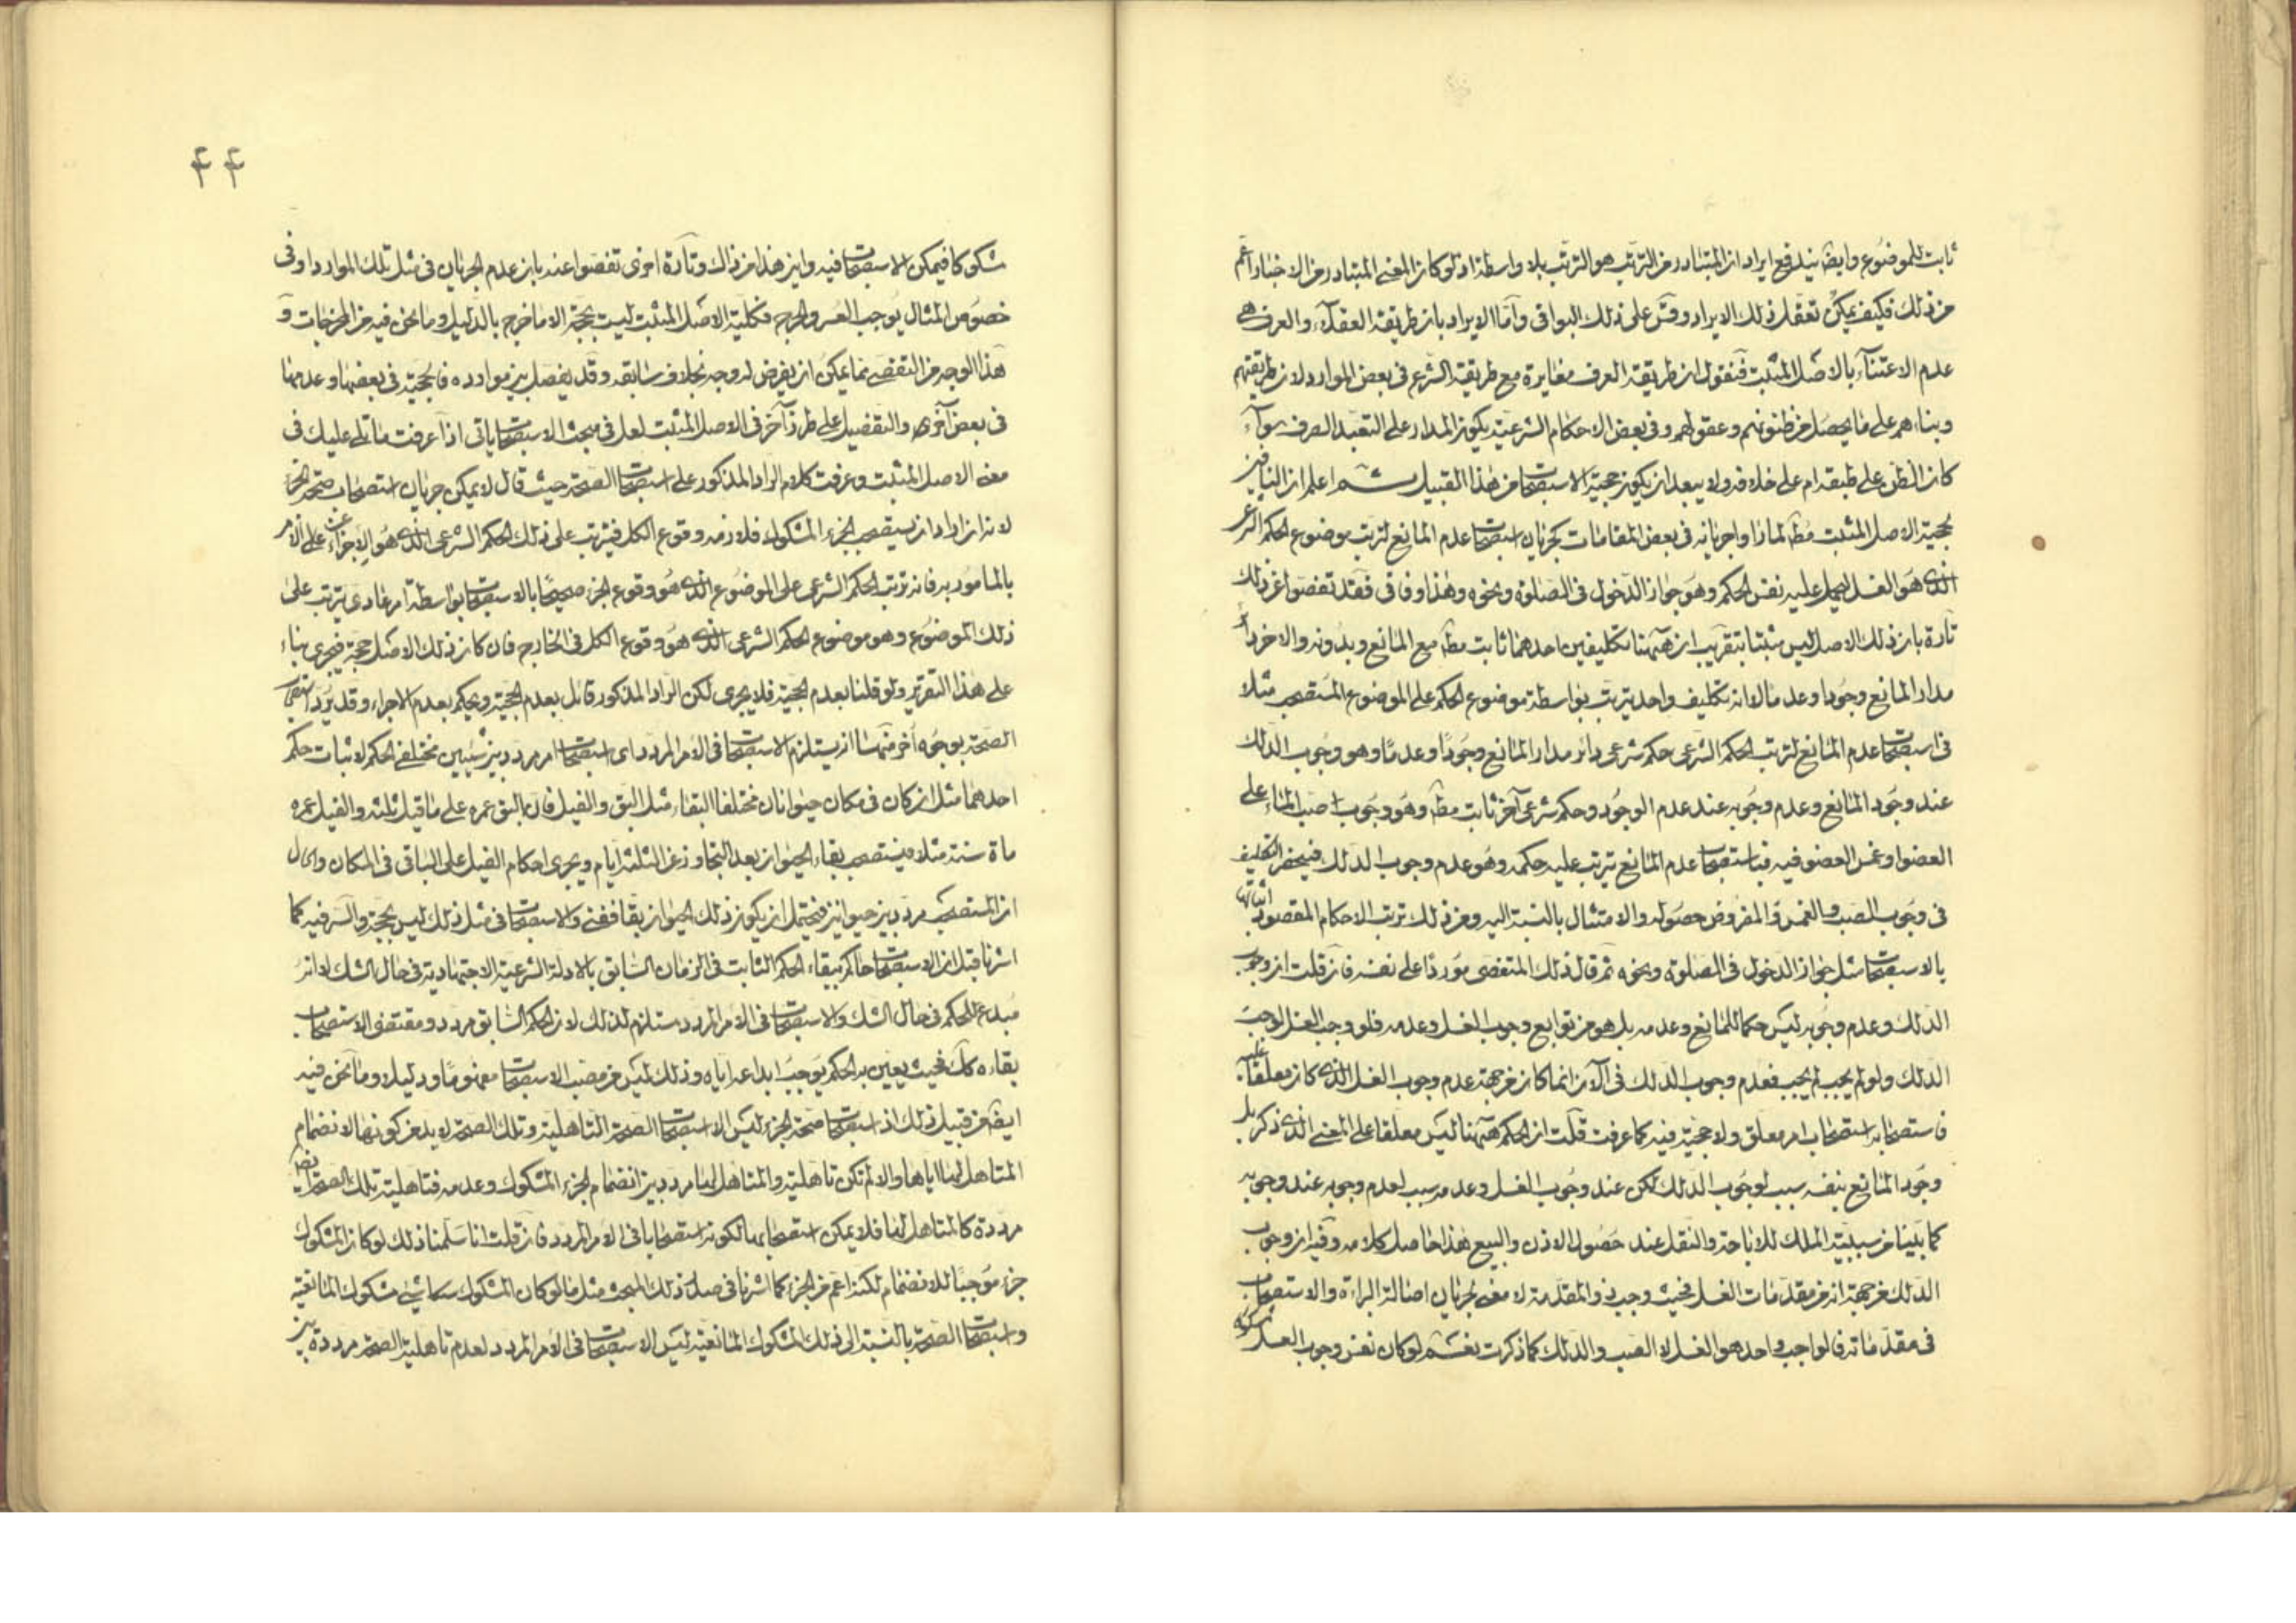 ثابت للموضوع وايضا يندفع ايراد ان المتبادر من الترتب هو الترتب بلا واسطة اذ لو كان المعنى المتبادر من الاخبار اعم
من ذلك فكيف يمكن تعقل ذلك الايراد وقس على ذلك البواقى واما الايراد بان طريقة العقلاء والعرف هى
عدم الاعتناء بالاصل المثبت فنقول ان طريقة العرف مغايرة مع طريقة الشرع فى بعض الموارد لان طريقتهم
وبناءهم على ما يحصل من ظنونهم وعقولهم وفى بعض الاحكام الشرعية يكون المدار على التعبد الصرف سواء
كان الظن على طبقه ام على خلافه ولا يبعد ان يكون حجية الاستصحاب من هذا القبيل ثم اعلم ان النافين
لحجية الاصل المثبت مط لما راوا جريانه فى بعض المقامات كجريان استصحاب عدم المانع لترتب موضوع الحكم الشرعى
الذى هو الغسل ليحمل عليه نفس الحكم وهو جواز الدخول فى الصلوة ونحوه وهذا وفاقى فقد تفصوا عن ذلك
تارة بان ذلك الاصل ليس مثبتا بتقريب ان ههنا تكليفين احدهما ثابت مط مع المانع وبدونه والاخر دائر
مدار المانع وجودا وعدما لا انه تكليف واحد يترتب بواسطة موضوع الحكم على الموضوع المستصحب مثلا
فى استصحاب عدم المانع لترتب الحكم الشرعى حكم شرعى دائر مدار المانع وجودا وعدما وهو وجوب الدلك
عند وجود المانع وعدم وجوبه عند عدم الوجود وحكم شرعى آخر ثابت مط وهو وجوب صب الماء على
العضو او غمس العضو فيه فباستصحاب عدم المانع يترتب عليه حكمه وهو عدم وجوب الدلك فينحصر التكليف
فى وجوب الصب والغمس والمفروض حصوله والامتثال بالنسبة اليه وعن ذلك ترتب الاحكام المقصود اثباتها
بالاستصحاب مثل جواز الدخول فى الصلوة ونحوه ثم قال ذلك المتفصى موردا على نفسه فان قلت ان وجوب
الدلك وعدم وجوبه ليس حكما للمانع وعدمه بل هو من توابع وجوب الغسل وعدمه فلو وجب الغسل لوجب
الدلك ولو لم يجب لم يجب فعدم وجوب الدلك فى الآن انما كان من جهة عدم وجوب الغسل الذى كان معلقا عليه
فاستصحابه استصحاب امر معلق ولا حجية فيه كما عرفت قلت ان الحكم ههنا ليس معلقا على المعنى الذى ذكر بل
وجود المانع بنفسه سبب لوجوب الدلك لكن عند وجوب الغسل وعدمه سبب لعدم وجوبه عند وجوبه
كما بينا من سببية الملك للاباحة والنقل عند حصول الاذن والبيع هذا حاصل كلامه وفيه ان وجوب
الدلك من جهة انه من مقدمات الغسل فحيث وجب ذو المقدمة لا معنى لجريان اصالة البراءة والاستصحاب
فى مقدماته فالواجب واحد هو الغسل لا الصب والدلك كما ذكرت نعم لو كان نفس وجوب الغسل مشكوكا
۴۴
شكوكا فيمكن الاستصحاب فيه واين هذا من ذاك وتارة اخرى تفصوا عنه بان عدم الجريان فى مثل تلك الموارد او فى
خصوص المثال يوجب العسر والحرج فكلية الاصل المثبت ليست بحجة الا ما خرج بالدليل وما نحن فيه من المخرجات و
هذا الوجه من التفصى مما يمكن ان يفرض له وجه بخلاف سابقه وقد يفصل بين موارده فالحجية فى بعضها وعدمها
فى بعض اخرى والتفصيل على طرز آخر فى الاصل المثبت لعل فى مبحث الاستصحاب ياتى اذا عرفت ما تلى عليك فى
معنى الاصل المثبت وعرفت كلام الراد المذكور على استصحاب الصحة حيث قال لا يمكن جريان استصحاب صحة الجزء
لانه ان اراد ان يستصحب الجزء المشكوك فلازمه وقوع الكل فيترتب على ذلك الحكم الشرعى الذى هو الاجزاء عن الامر
بالمامور به فانه ترتب الحكم الشرعى على الموضوع الذى هو وقوع الجزء صحيحا بالاستصحاب بواسطة امر عادى يترتب على
ذلك الموضوع وهو موضوع الحكم الشرعى الذى هو وقوع الكل فى الخارج فان كان ذلك الاصل حجة فيجرى بناء
على هذا التقرير ولو قلنا بعدم الحجية فلا يجرى لكن الراد المذكور قائل بعدم الحجية ويحكم بعدم الاجراء وقد يرد استصحاب
الصحة بوجوه اخر منها ان يستلزم الاستصحاب فى الامر المردد اى استصحاب امر مردد بين شيئين مختلفى الحكم لاثبات حكم
احدهما مثل ان كان فى مكان حيوانان مختلفا البقاء مثل البق والفيل فان البق عمره على ما قيل ثلثة والفيل عمره
ماة سنة مثلا فيستصحب بقاء الحيوان بعد التجاوز عن الثلثة ايام ويجرى احكام الفيل على الباقى فى المكان والحال
ان المستصحب مردد بين حيوانين فيحتمل ان يكون ذلك الحيوان بقا ففنى والاستصحاب فى مثل ذلك ليس بحجة والسر فيه كما
اشرنا قبل ان الاستصحاب حاكم ببقاء الحكم الثابت فى الزمان السابق بالادلة الشرعية الاجتهادية فى حال الشك لا انه
مبدع للحكم فى حال الشك والاستصحاب فى الامر المردد مستلزم لذلك لان الحكم السابق مردد ومقتضى الاستصحاب
بقاءه كك فحيث يعين به الحكم يوجب ابداعه اياه وذلك ليس من منصب الاستصحاب مفهوما ودليلا وما نحن فيه
ايضا من قبيل ذلك اذ استصحاب صحة الجزء ليس الا استصحاب الصحة التاهلية وتلك الصحة لا بد من كونها لانضمام
المتاهل لها اياها والا لم تكن تاهلية والمتاهل لها مردد بين انضمام الجزء المشكوك وعدمه فتاهلية تلك الصحة ايضا
مرددة كالمتاهل لها فلا يمكن استصحابها لكونه استصحابا فى الامر المردد فان قلت انا سلمنا ذلك لو كان المشكوك
جزء موجبا للانضمام لكنه اعم من الجزء كما اشرنا فى صدر ذلك المبحث مثل ما لو كان المشكوك شيئا مشكوك المانعية
واستصحاب الصحة بالنسبة الى ذلك المشكوك المانعية ليس الاستصحاب فى الامر المردد لعدم تاهلية الصحة مرددة بين